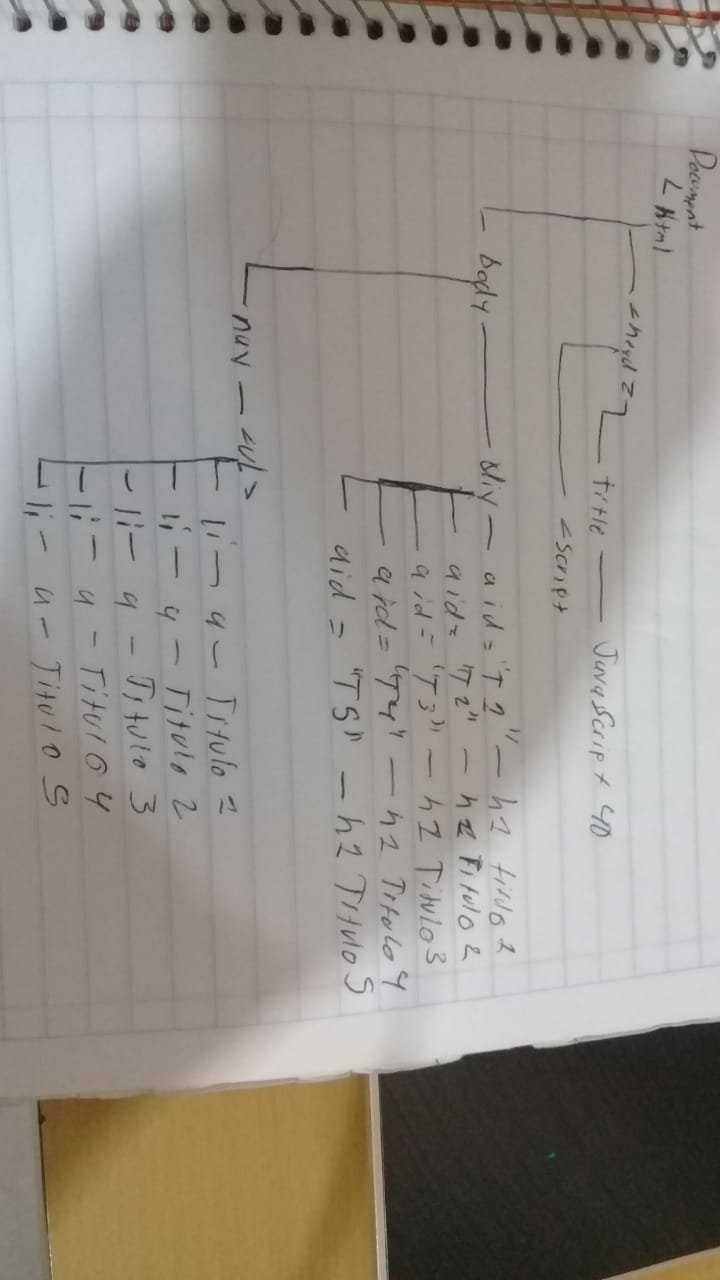 Document
< html
<head>
title — JavaScript 4D
<script
body — div — a id = "T1" — h1 titulo 1
a id = "T2" — h1 Titulo 2
a id = "T3" — h1 Titulo 3
a id = "T4" — h1 Titulo 4
a id = "T5" — h1 Titulo 5
nav — <ul>
li — a — Titulo 1
li — a — Titulo 2
li — a — Titulo 3
li — a — Titulo 4
li — a — Titulo 5